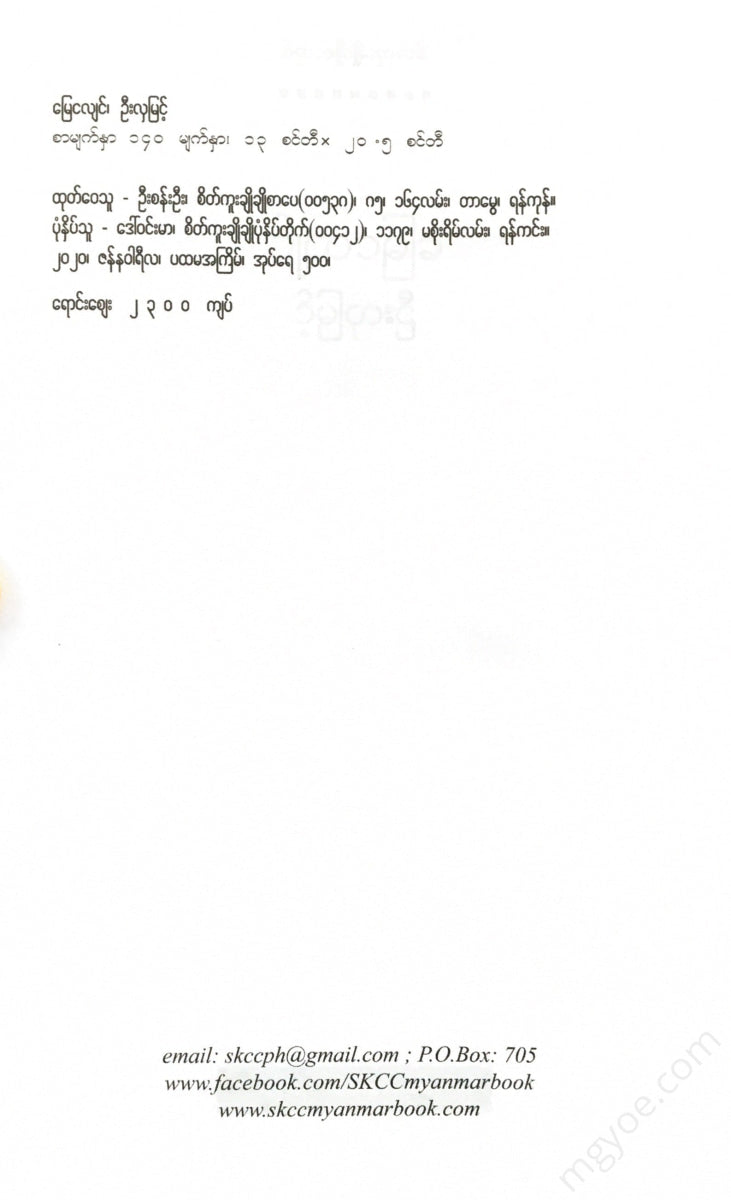 မြေငလျင်၊ ဦးလှမြင့်
စာမျက်နှာ ၁၄၀ မျက်နှာ၊ ၁၃ စင်တီ× ၂၀ .၅ စင်တီ
ထုတ်ဝေသူ - ဦးစန်းဦး၊ စိတ်ကူးချိုချိုစာပေ(၀၀၅၃၈)၊ ၈၅၊ ၁၆၄လမ်း၊ တာမွေ၊ ရန်ကုန်။
ပုံနှိပ်သူ - ဒေါ်ဝင်းမာ၊ စိတ်ကူးချိုချိုပုံနှိပ်တိုက်(၀၀၄၁၂)၊ ၁၁၇၉၊ မစိုးရိမ်လမ်း၊ ရန်ကင်း။
၂၀၂၀၊ ဇန်နဝါရီလ၊ ပထမအကြိမ်၊ အုပ်ရေ ၅၀၀၊
ရောင်းဈေး ၂ ၃ ၀ ၀ ကျပ်
email: skccph@gmail.com ; P.O.Box: 705
www.facebook.com/SKCCmyanmarbook
www.skccmyanmarbook.com
mgyoe.com